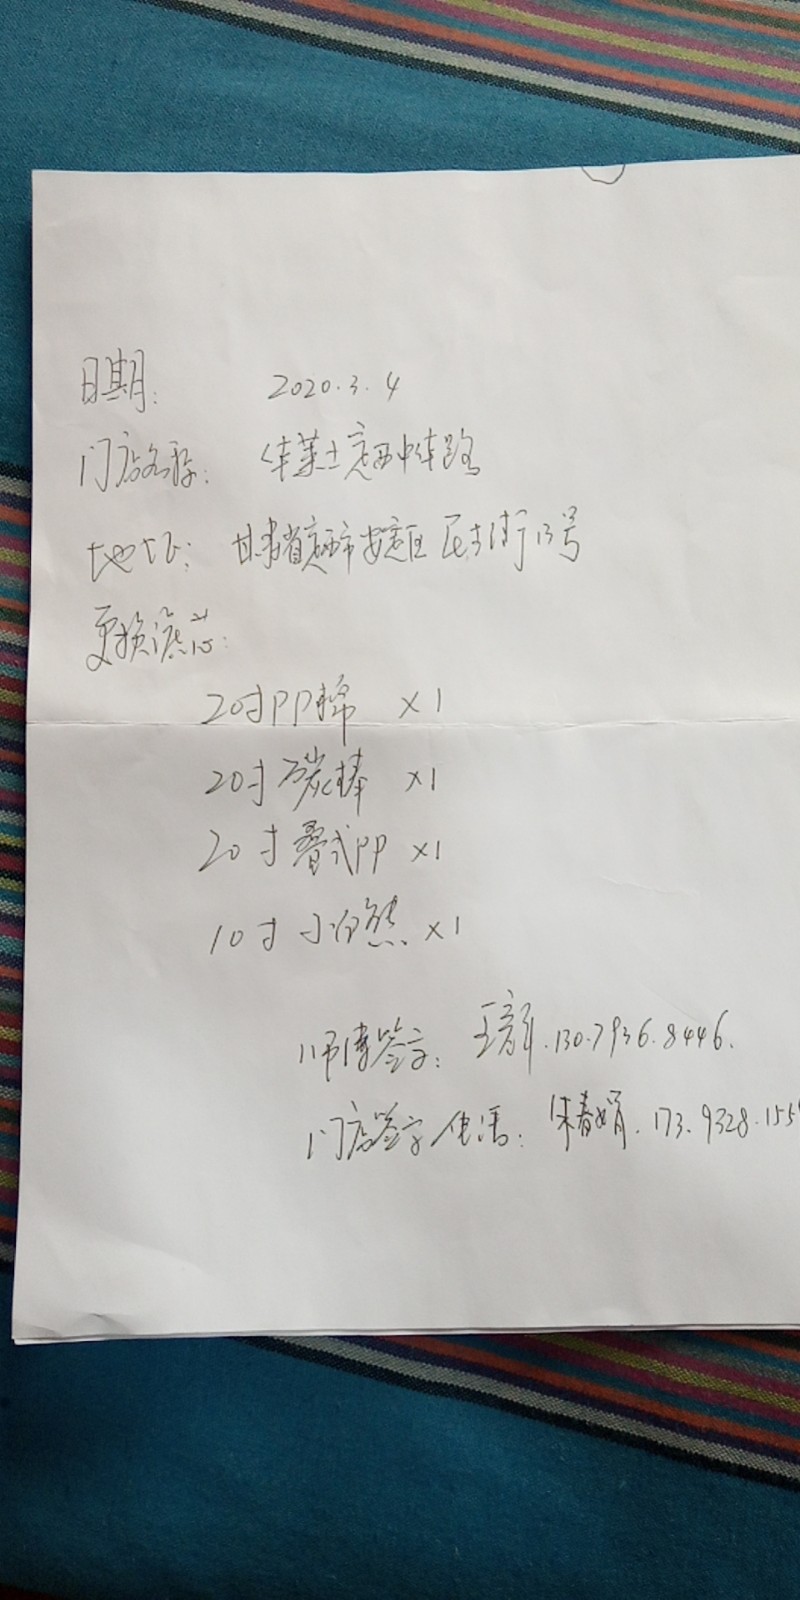 日期: 2020.3.4
门店名称: 华莱士定西中华路
地址: 甘肃省定西市安定区民主街13号
更换滤芯:
20寸PP棉 ×1
20寸碳棒 ×1
20寸叠式PP ×1
10寸小白熊 ×1
师傅签字: 王 .130.7936.8446.
门店签字电话: 朱春娟.173.9328.155